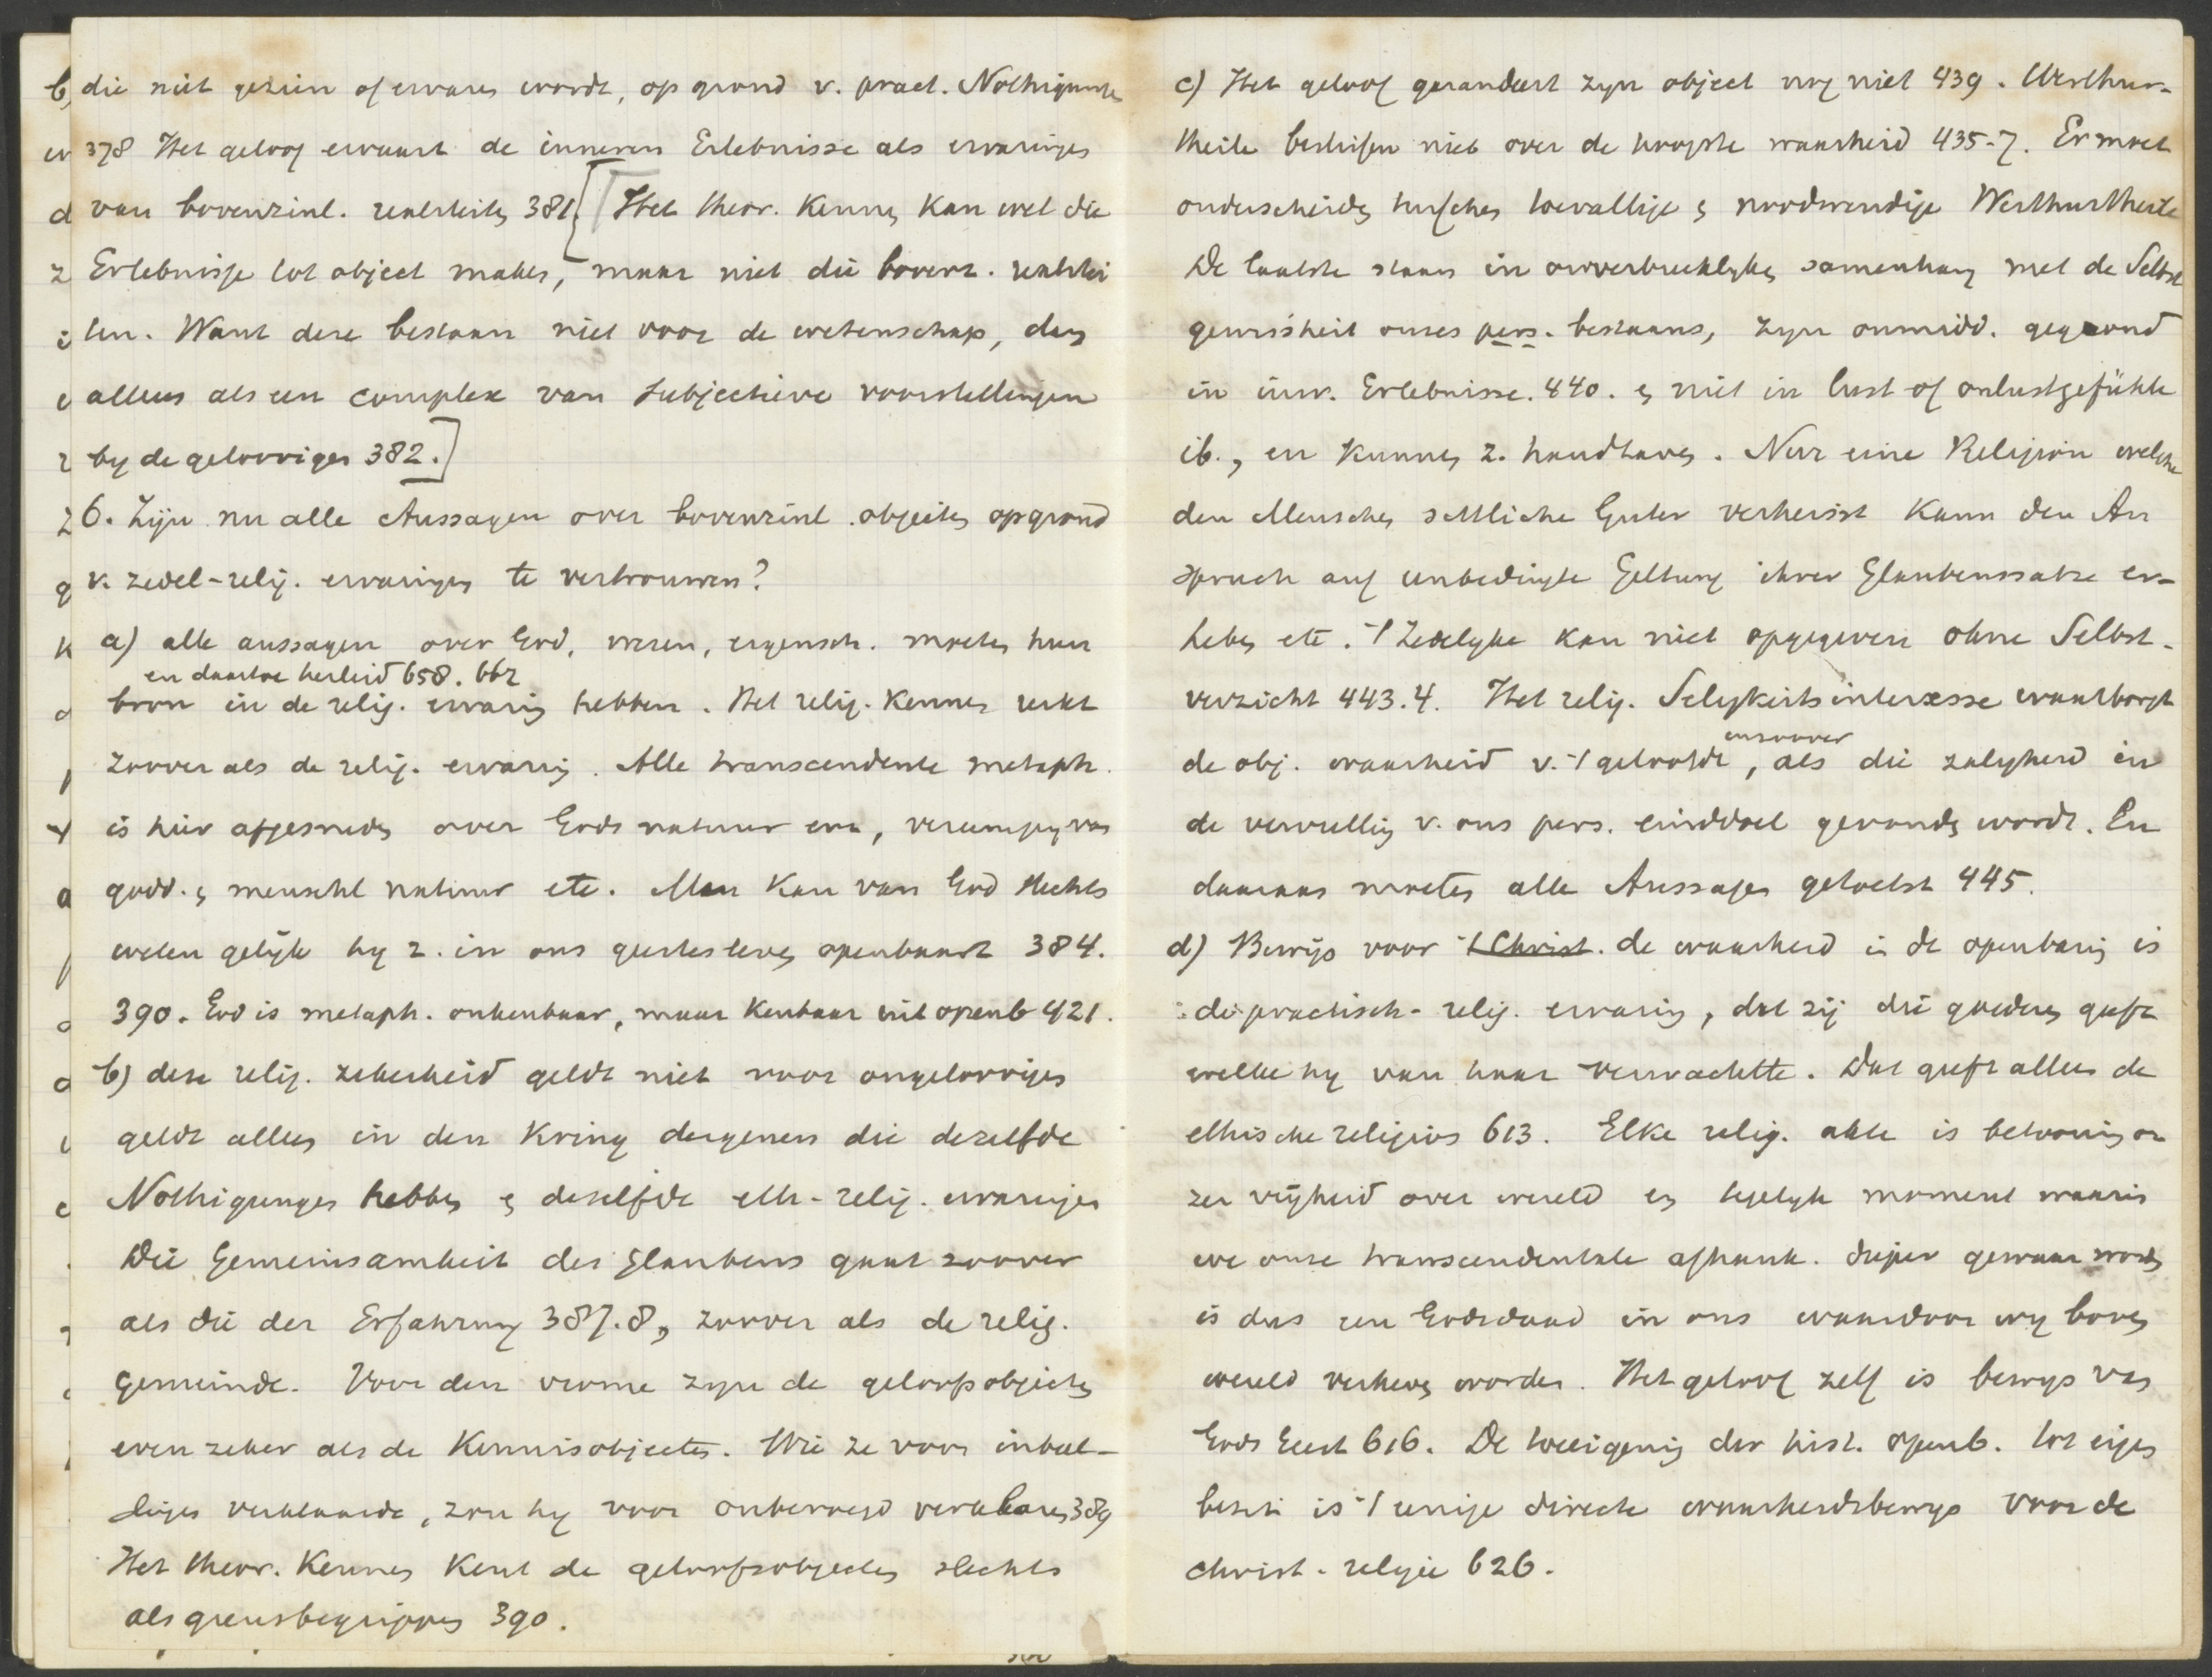 die niet gezien of ervaren wordt, op grond v. pract. Nothigung
378 Het geloof ervaart de inneren Erlebnisse als ervaringen
van bovenzinl. realiteiten 381. [Het theor. Kennen kan wel die
Erlebnisse tot object maken, maar niet die bovenz. realitei
ten. Want deze bestaan niet voor de wetenschap, dan
alleen als een complex van subjectieve voorstellingen
by de geloovigen 382.]
6. Zijn nu alle Aussagen over bovenzinl. objecten op grond
v. zedel-relig. ervaringen te vertrouwen?
a) alle aussagen over God, wezen, eigensch. moeten hun
en daartoe herleid 658. 662
bron in de relig. ervaring hebben. Het relig. Kennen reikt
zoover als de relig. ervaring. Alle transcendente metaph.
is hier afgesneden over Gods natuur enz, vereeniging van
godd. en menschl natuur etc. Men kan van God slechts
weten gelijk hy z. in ons geestesleven openbaart 384.
390. God is metaph. onkenbaar, maar kenbaar uit openb 421.
b) deze relig. zekerheid geldt niet voor ongeloovigen
geldt alleen in den Kring dergenen die dezelfde
Nothigungen hebben en deselfde eth-relig. ervaringen
Die Gemeinsamkeit des Glaubens gaat zoover
als die der Erfahrung 387.8, zoover als de relig.
gemeinde. Voor den vrome zyn de geloofsobjecten
even zeker als de Kennisobjecten. Wie ze voor inbeel-
dingen verklaarde, zou hy voor onbevoegd verklaren 389
Het theor. Kennen Kent de geloofsobjecten slechts
als grensbegrippen 390.
c) Het geloof garandeert zyn object nog niet 439. Werthur-
theile beslissen niet over de hoogste waarheid 435-7. Er moet
onderscheiden tusschen toevallige en noodwendige Werthurtheile
De laatste staan in onverbreeklyken samenhang met de Selbst
gewissheit onzes pers. bestaans, zyn onmidd. gegrond
in inn. Erlebnisse. 440. en niet in lust of onlustgefühle
ib., en kunnen z. handhaven. Nur eine Religion welche
den Menschen sittliche Güter verheisst kann den An
spruch auf unbedingte Geltung ihrer Glaubenssatze er-
heben etc. 't Zedelyke kan niet opgegeven ohne Selbst-
verzicht 443.4. Het relig. Seligkeitsinteresse waarborgt
de obj. waarheid v. 't geloofde, inzoover als die zaligheid in
de vervulling v. ons pers. einddoel gevonden wordt. En
daaraan moeten alle Aussagen getoetst 445.
d) Bewijs voor 't Christ. de waarheid in de openbaring is
de practisch-relig. ervaring, dat zij die goederen geeft
welke hy van haar verwachtte. Dat geeft alleen de
ethische religion 613. Elke relig. akte is betooning on
zer vrijheid over wereld en tegelyk moment waarin
we onze transcendentale afhank. dieper gewaar worden
is dus een Godsdaad in ons waardoor wy boven
wereld verheven worden. Het geloof zelf is bewys van
Gods Geest 616. De toeeigening der hist. openb. tot eigen
bezit is 't eenige directe waarheidsbewys voor de
christ. religie 626.